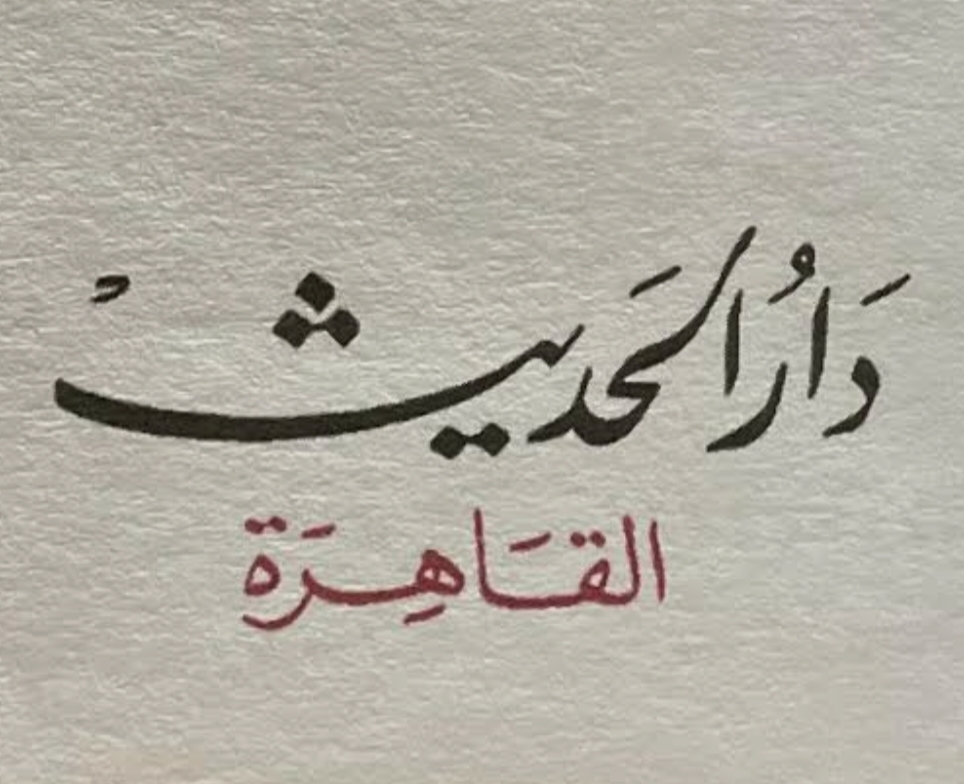 دَارُ الحَديثْ
القَاهِرَة